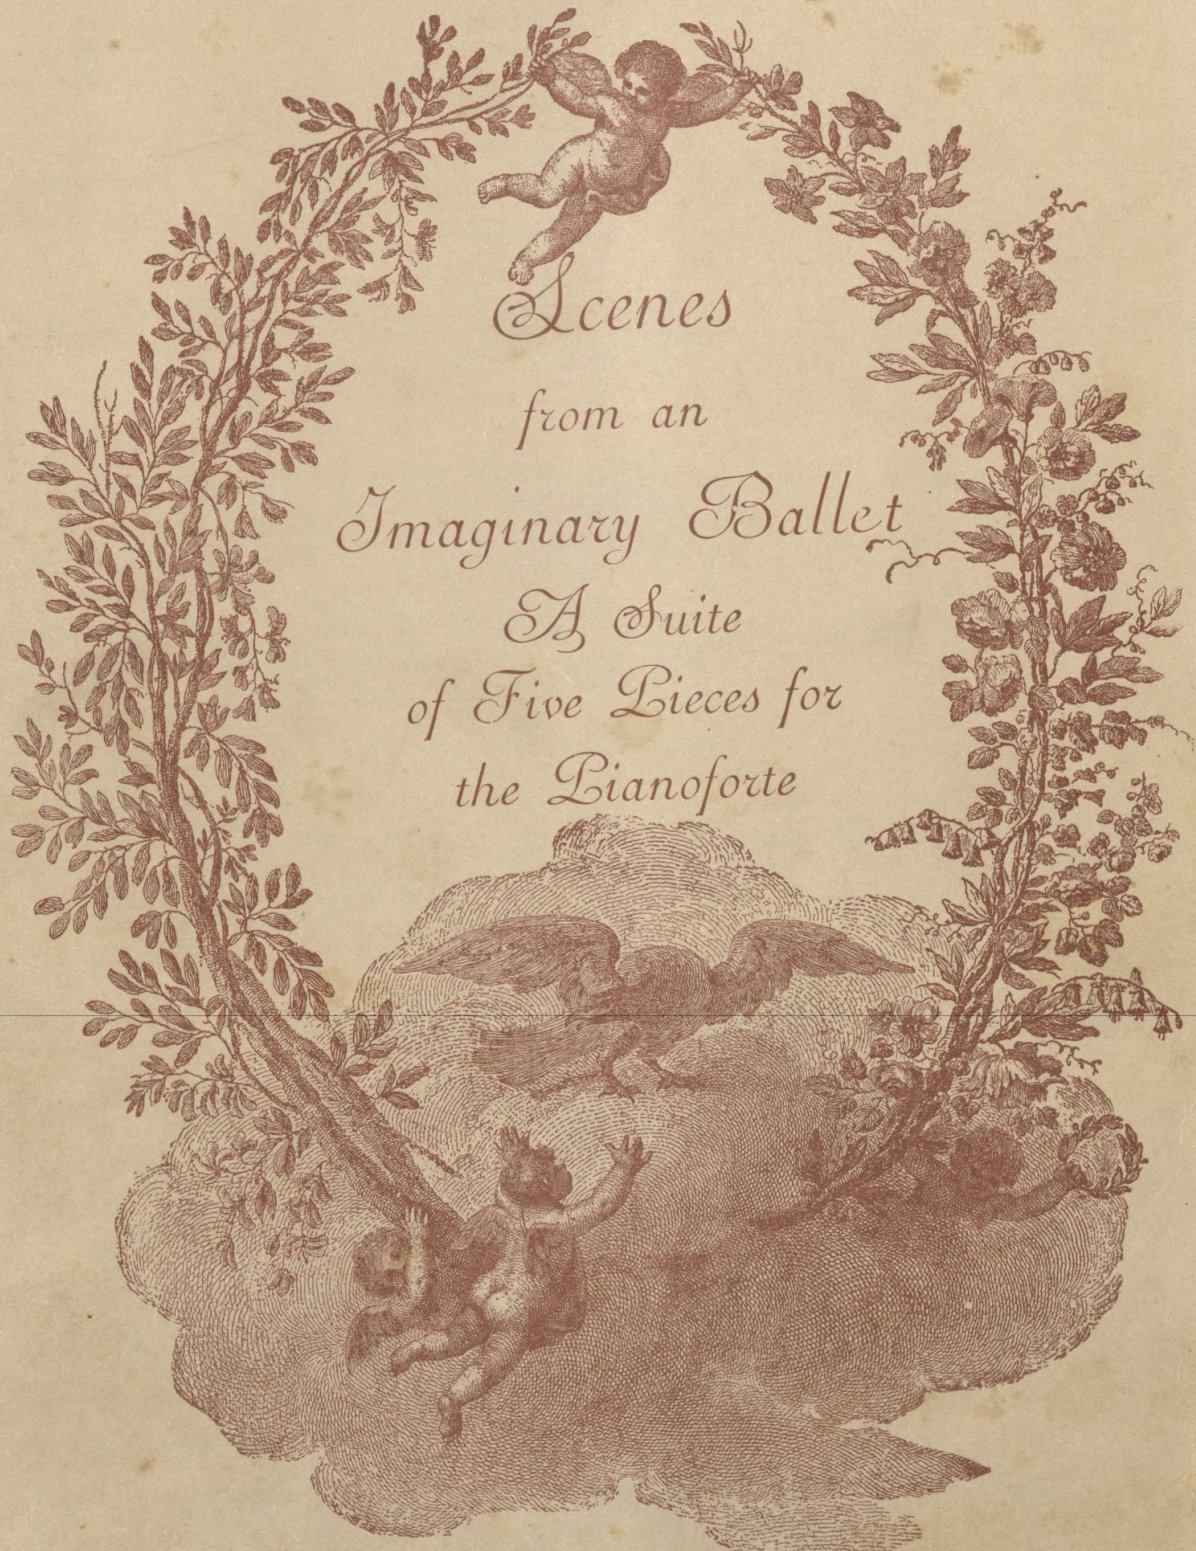 Scenes
from an
Imaginary Ballet
A Suite
of Five Pieces for
the Pianoforte